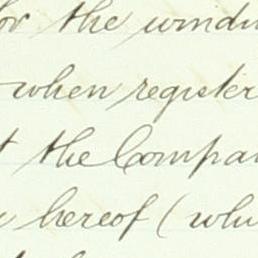 for the windi
when register
the Compa
hereof (whi